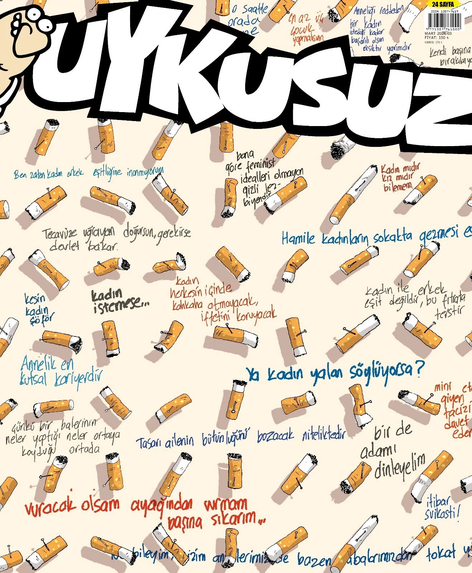 24 SAYFA
o saatte
orada
En az üç
çocuk
yapmalısın
Anneliği reddeden
bir kadın
eksiktir yarımdır
kendi başına
UYKUSUZ
Ben zaten kadın erkek eşitliğine inanmıyorum
bana
göre feminist
idealleri olmayan
gizli
Kadın mıdır
kız mıdır
bilemem
Tecavüze uğrayan doğursun, gerekirse
devlet bakar.
Hamile kadınların sokakta gezmesi
kesin
kadın
şoför
kadın
istemese...
kadın
herkesin içinde
kahkaha atmayacak,
iffetini koruyacak
kadın ile erkek
eşit değildir, bu fıtrata
terstir
Annelik en
kutsal kariyerdir
Ya kadın yalan söylüyorsa?
mini
giyen
tacizi
davet
eder
günkü bir
neler yaptığı neler ortaya
koyduğu ortada
Tasarı ailenin bütünlüğünü bozacak niteliktedir
bir de
adamı
dinleyelim
vuracak olsam ayağından vurmam
başına sıkarım...
itibar
suikasti!
bileyim, bizim annelerimiz de bazen babalarımızdan tokat